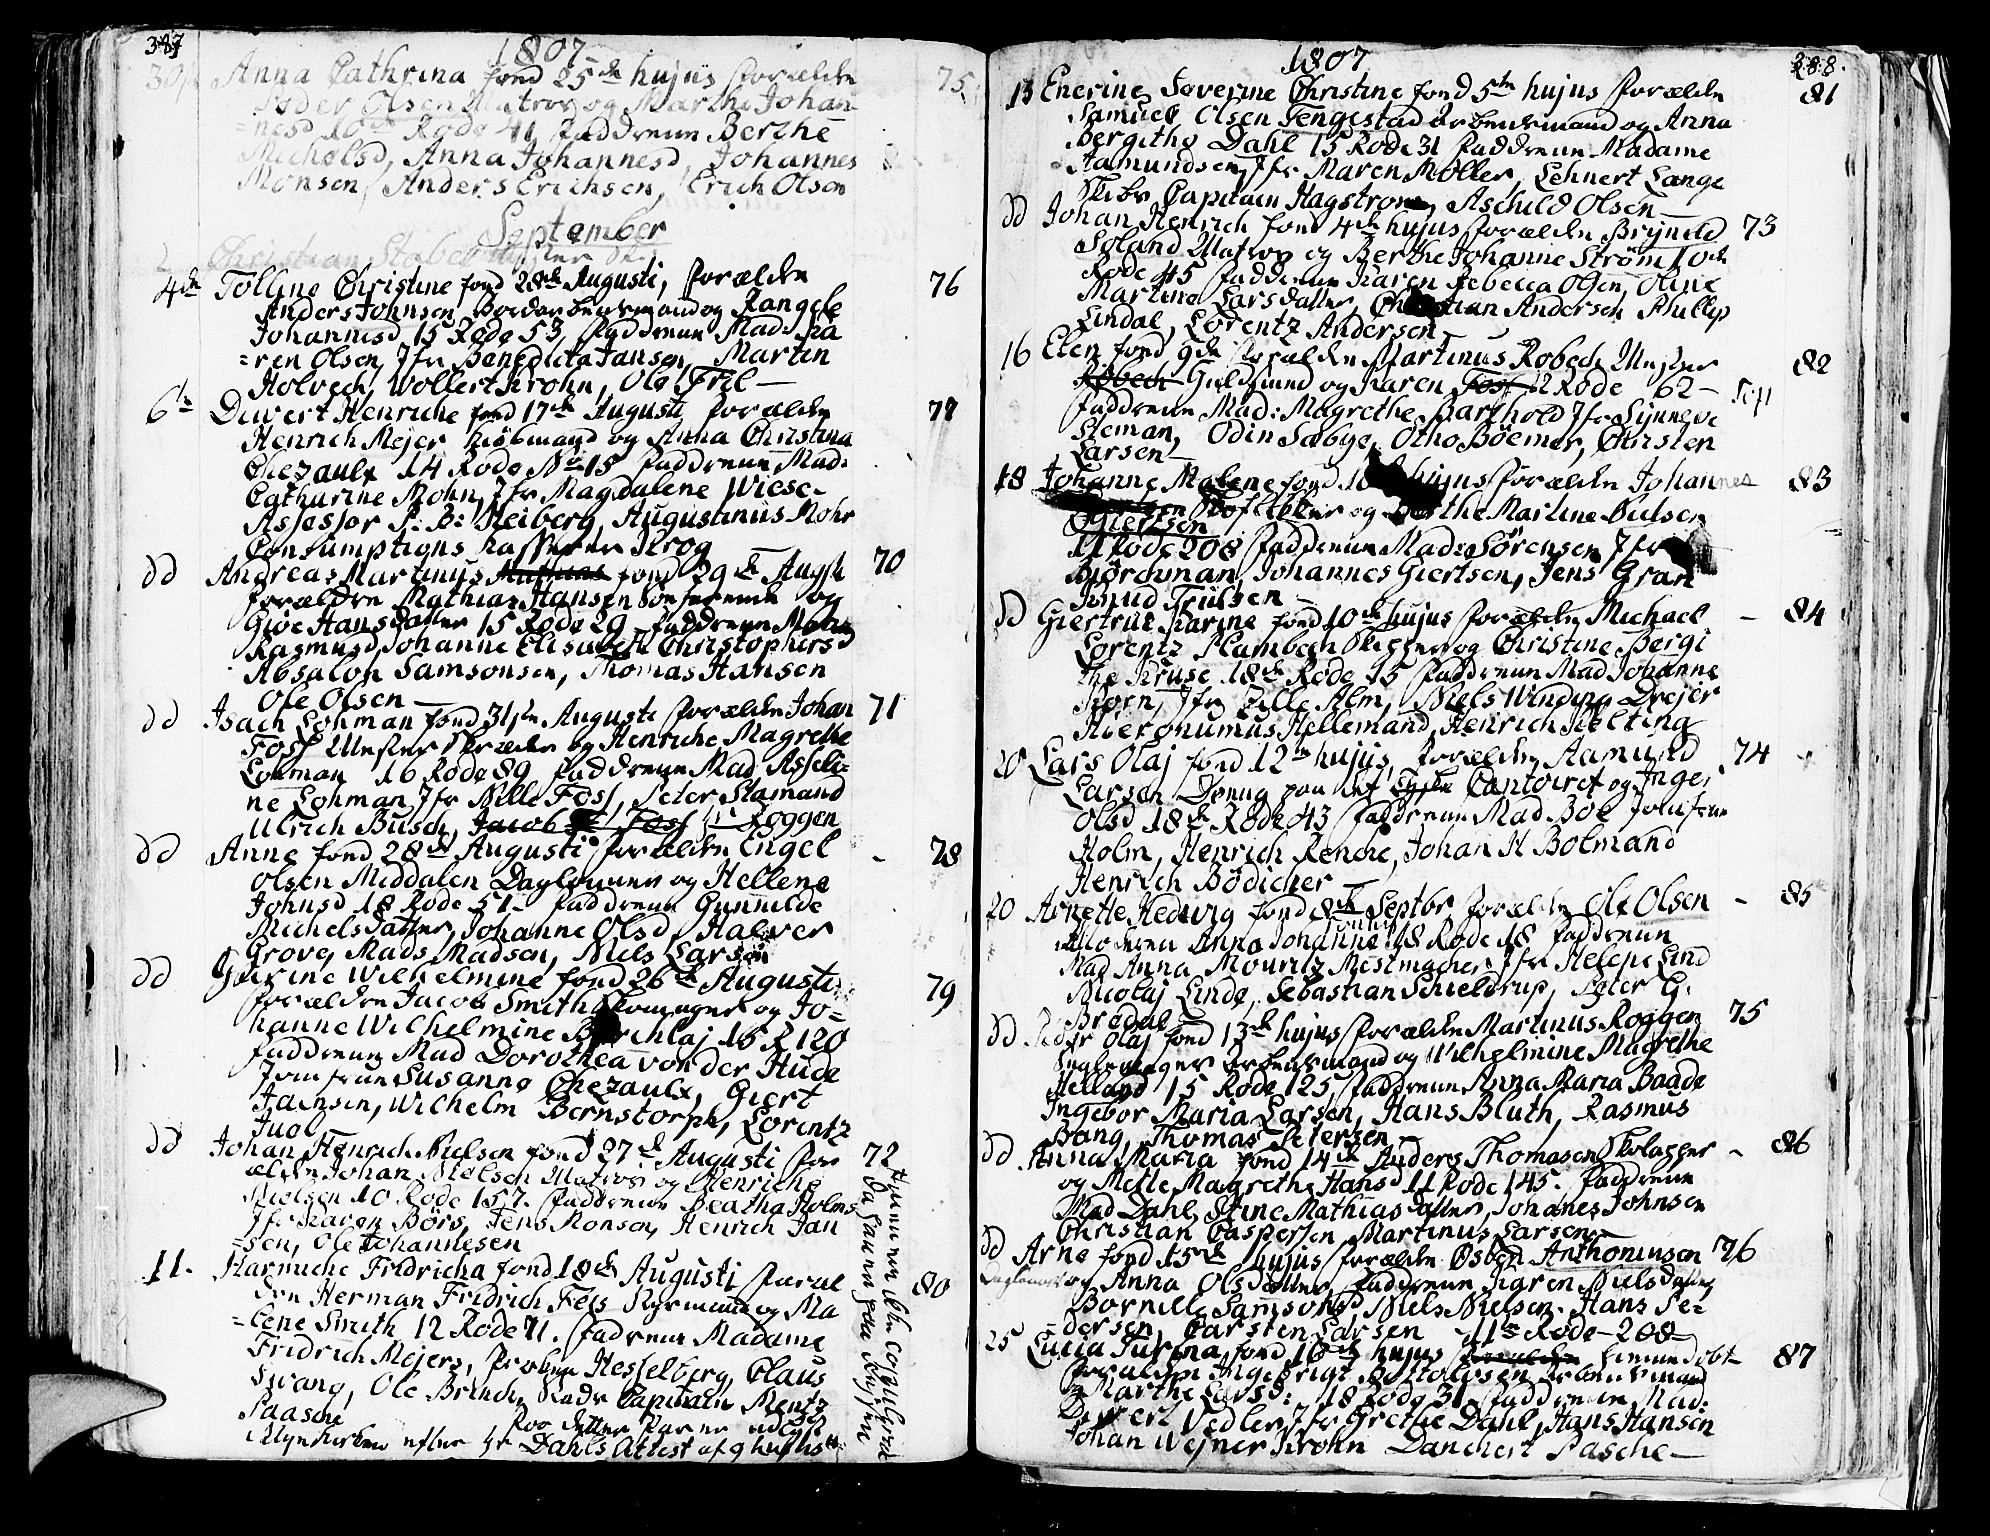 387
1807
30 Anna Cathrina fond 25de hujus Forældre 75
Peder Olsen Matros og Marthe Johan-
=nesd 10de Rode 41 Faddrene Berthe
Michelsd, Anna Johannesd, Johannes
Monsen, Anders Erichsen, Erich Olsen
September
Christian Stabel
4de Tolline Christine fond 28de Augusti, Forældre 76
Anders Johnsen og Rangele
Johannesd 15 Rode 53, Faddrene Mad: Ka
=ren Olsen, Jfr Benedicta Jansen, Martin
Holvech, Wollert Krohn, Ole Fril—
6te Diwert Henriche fond 17de Augusti Forældre 77
Henrich Mejer Kiøbmand og Anna Christina
Chezaulx 14 Rode No 15 Faddrene Mad:
Catharine Mohn, Jfr Magdalene Wiese-
Assessor P. B: Heiberg, Augustinus Mohr
Consumptions Kasserer Krog
dd Andreas Martinus fond 29de Augsti 70
Forældre Mathias Hansen og
Giøe Hansdatter 15 Rode 29 Faddrene
Rasmusd, Johanne Elisabeth Christophersd
Absalon Samsonsen, Thomas Hansen
Ole Olsen—
dd Isach Lohman fond 31ste Augusti Forældre Johan 71
Foss Mester og Henriche Magrethe
Lohman 16 Rode 89 Faddrene Mad Asseli=
ne Lohman, Jfr Nille Foss, Peter Stamand
Ulrich Busch, Jacob Foss Roggen
dd Anne fond 28de Augusti Forældre Engel - 78
Olsen Middalen Dagleiner og Hellene
Johnsd 18 Rode 51- Faddrene Gunnilde
Michelsdatter, Johanne Olsd, Halver
Grove, Mads Madsen, Niels Larsen
dd Gurine Wilhelmine fond 26de Augusti 79
Forældre Jacob Smith Skomager og Jo=
hanne Wilhelmine 15 R 120
Faddrene Mad Dorothea von der Hude
Jomfrue Susanne Chezaulx, Giert
Jansen, Wilhelm Bernstorph, Lorentz
Juul
dd Johan Henrich Nielsen fond 27de Augusti For 72
ældre Johan Nielsen Matros og Henriche
Nielsen 10 Rode 157. Faddrene Beatha Holms
Jfr Karen Børs, Jens Monsen, Henrich Jan
=sen, Ole Johannesen
11. Harmiche Fridricha fond 18de Augusti Foræl 80
dre Herman Fridrich Fess og Ma
=lene Smith 12 Rode 71. Fadrene Madame
Fridrich Mejers, Hesselberg, Claus
Svang, Ole Brinch, Capitain Mentz
Paasche
Nyekirken efter Hr Dahls Attest af 9 hujus
288.
1807
13 Enerine Severine Christine fond 5te hujus Forældre 81
Samuel Olsen Tengestad Arbeidsmand og Anna
Bergithe Dahl 15 Rode 31 Faddrene Madame
Aamundsen, Jfr Maren Møller, Lehnert Lange
Skibs Capitain Hagstrom, Aschild Olsen—
dd Johan Henrich fond 4de hujus Forældre Bryneld 73
Soland Matros og Berthe Johanne Strøm 10de
Rode 45 Faddrene Karen Rebecca Olsen, Oline
Martine Larsdatter, Christian Andersen Phillip
Lindal, Lorentz Andersen
16 Elen fond 9de Forældre Martinus Robech Mester 82
Guldsmed og Karen Foss 12 Rode 62—
Faddrene Mad: Magrethe Barthold Jfr Synneve
Heman, Odin Sæbye, Otho Böemer, Christen
Larsen—
18 Johanne Malene fond 10 hujus Forældre Johannes 83
Giertsen og Berthe Martine Bulsen
11 Rode 208 Faddrene Mad: Sørensen Jfr
Biörchman, Johannes Giertsen, Jens Gran
Knud Trulsen—
dd Giertrut Karine fond 10de hujus Forældre Michael - 84
Lorentz Plambech Skipper og Christine Bergi
the Kruse 18de Rode 15 Faddrene Mad Johanne
Biørn, Jfr Zille Alm, Niels Winding Drejer
Hieronumus Hellemand, Henrich Helting
20 Lars Olaj fond 12te hujus, Forældre Aamund 74
Larsen Dreng paa det Contoiret og Inger
Olsd 18de Rode 43 Faddrene Mad Boe Jomfrue
Holm, Henrich Renche, Johan H Bolmand
Henrich Bödicher
20 Arnette Hedwig fond 8de Septbr Forældre Ole Olsen - 85
Moderen Anna Johanne 18 Rode 18 Faddrene
Mad Anna Mouritz Mestmacher Jfr Helene Lind
Nicolaj Linde, Sebastian Schieldrup, Peter G.
Brodal
dd Peder Olaj fond 13de hujus Forældre Martinus Roggen 75
Seglemager Arbeidsmand og Wilhelmine Magrethe
Helland 15 Rode 125 Faddrene Anna Maria Baade
Ingebor Maria Larsen, Hans Bluth, Rasmus
Bang, Thomas Petersen
dd Anna Maria fond 14de Anders Thomasen Skolapper - 86
og Mette Magrethe Hansd 11 Rode 145. Faddrene
Mad Dahl, Stine Mathiasdatter, Johanes Johnsen
Christian Caspersen Martinus Larsen
dd Arne fond 15de hujus Forældre Osben Anthoniusen 76
og Anna Olsdatter, Faddrene Karen Nielsdatter,
Bornille Samsonsd Niels Nielsen. Hans Pe=
=dersen, Carsten Larsen 11te Rode-208—
25 Lucia Jurina fond 16de hujus hiemmedøbt 87
Forældre Ingebrigt Arbeidsmand
Marthe Larsd: 18 Rode 31 Faddrene Mad:
Diwert Vedler, Jfr Grethe Dahl, Hans Hansen
Johan Wejner Krohn Danchert Pasche—